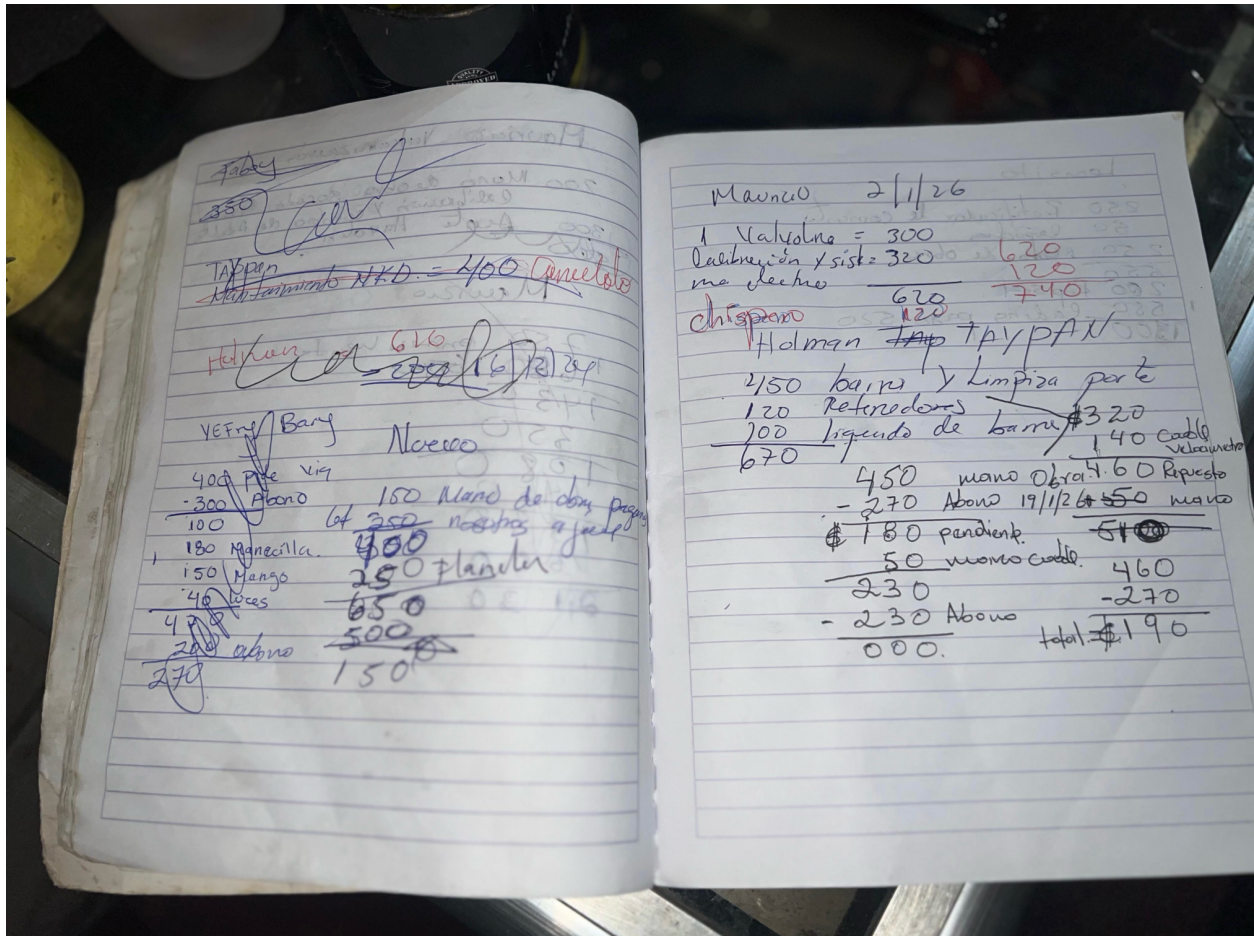 350
TAYPAN
Mantenimiento NKD. = 400 Cancelado
Holman 616
YEFry Bany
Nuevo
400 Pte
-300 Abono
100
180 Manecilla.
150 Mango
40 luces
200 abono
270
150 Mano de obra
250 nosotros
400
250
650
500
150
Mauricio 2/1/26
1 Valvolne = 300
Calibración y siste = 320
ma electrico
620
chispero 120
620
120
740
Holman TAYPAN
450 barra y Limpiza porte
120 Retenedores
100 liquido de barra
670
$320
140 Cable
Velocimetro
460 Repuesto
50 mano
510
460
-270
total = $190
450 mano Obra.
- 270 Abono 19/1/26
$180 pendiente.
50 mano cable.
230
- 230 Abono
000.